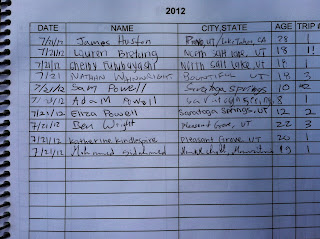 2012
DATE NAME CITY, STATE AGE TRIP
7/21/12 James Huston CA 28 1
7/21/12 Lauren North Salt Lake, UT 18
7/21/12 Chelsy North Salt Lake, UT 19 1
7/21 NATHAN WAINWRIGHT BOUNTIFUL UT 19 3
7/21/12 Sam Powell Saratoga Springs 10
7/21/12 Adam Powell 8 1
7/21/12 Eliza Powell Saratoga Springs, UT 12 2
7/21/12 Ben Wright Pleasant Grove, UT 22 3
7/21/12 Katherine Pleasant Grove, UT 20 1
7/21/12 Mohamed 19 1